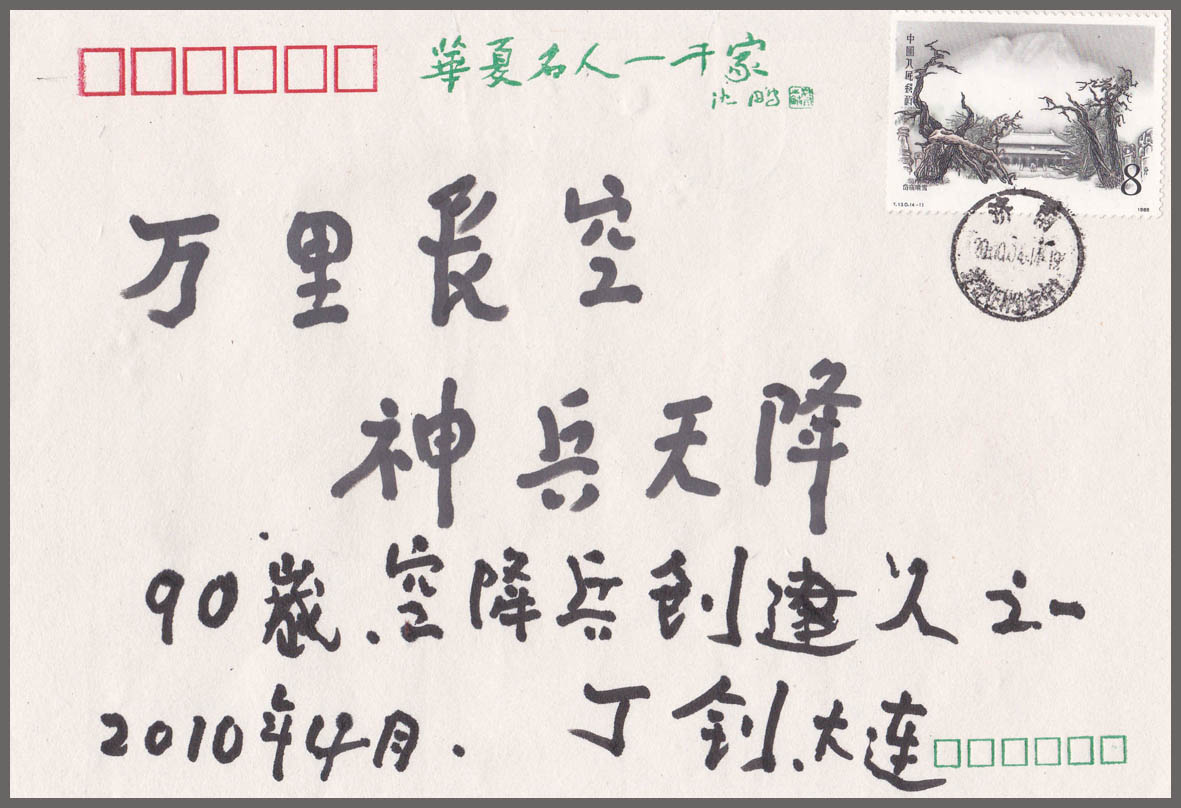 華夏名人一千家
沈鹏
中国人民邮政
岱庙瑞雪
8
T.130.(4-1)
1988
济南
万里長空
神兵天降
90歲.空降兵創建人之一
2010年4月.丁釗.大连